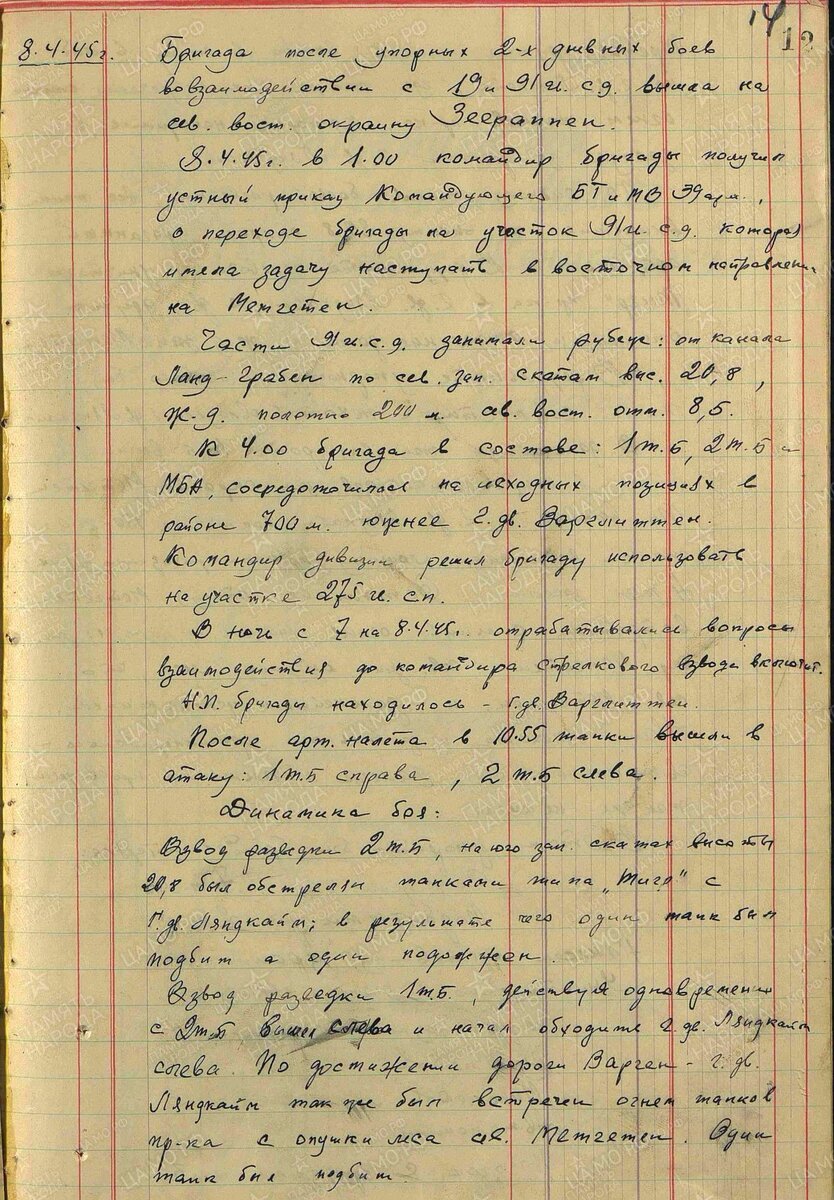 14
12
8.4.45г. Бригада после упорных 2-х дневных боев
во взаимодействии с 19 и 91 г.с.д. вышла на
сев. вост. окраину Зеераппен.
8.4.45г. в 1.00 командир бригады получил
устный приказ Командующего БТ и МВ 39 арм.,
о переходе бригады на участок 91 г.с.д. которая
имела задачу наступать в восточном направлении
на Метгетен.
Части 91 г.с.д. занимали рубеж: от канала
Ланд-Грабен по сев. зап. скатам выс. 20,8,
ж.д. полотно 200 м. сев. вост. отм. 8,5.
К 4.00 бригада в составе: 1 т.б, 2 т.б и
МБА, сосредоточилась на исходных позициях в
районе 700 м. южнее г.дв. Варглиттен.
Командир дивизии решил бригаду использовать
на участке 275 г. сп.
В ночь с 7 на 8.4.45г. отрабатывались вопросы
взаимодействия до командира стрелкового взвода включит.
Н.П. бригады находилось - г.дв. Варглиттен.
После арт. налета в 10.55 танки вышли в
атаку: 1 т.б справа, 2 т.б слева.
Динамика боя:
Взвод разведки 2 т.б, на юго зап. скатах высоты
20,8 был обстрелян танками типа „Тигр" с
г.дв. Ляндкайм; в результате чего один танк был
подбит а один подожжен.
Взвод разведки 1 т.б., действуя одновременно
с 2 т.б, вышел слева и начал обходить г.дв. Ляндкайм
слева. По достижении дороги Варген - г.дв.
Ляндкайм так же был встречен огнем танков
пр-ка с опушки леса сев. Метгетен. Один
танк был подбит